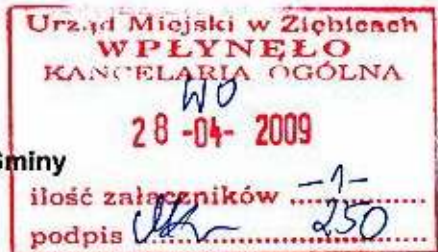 Urząd Miejski w Ziębicach
WPŁYNĘŁO
KANCELARIA OGÓLNA
WO
28 -04- 2009
Gminy
ilość załączników -1-
podpis 250